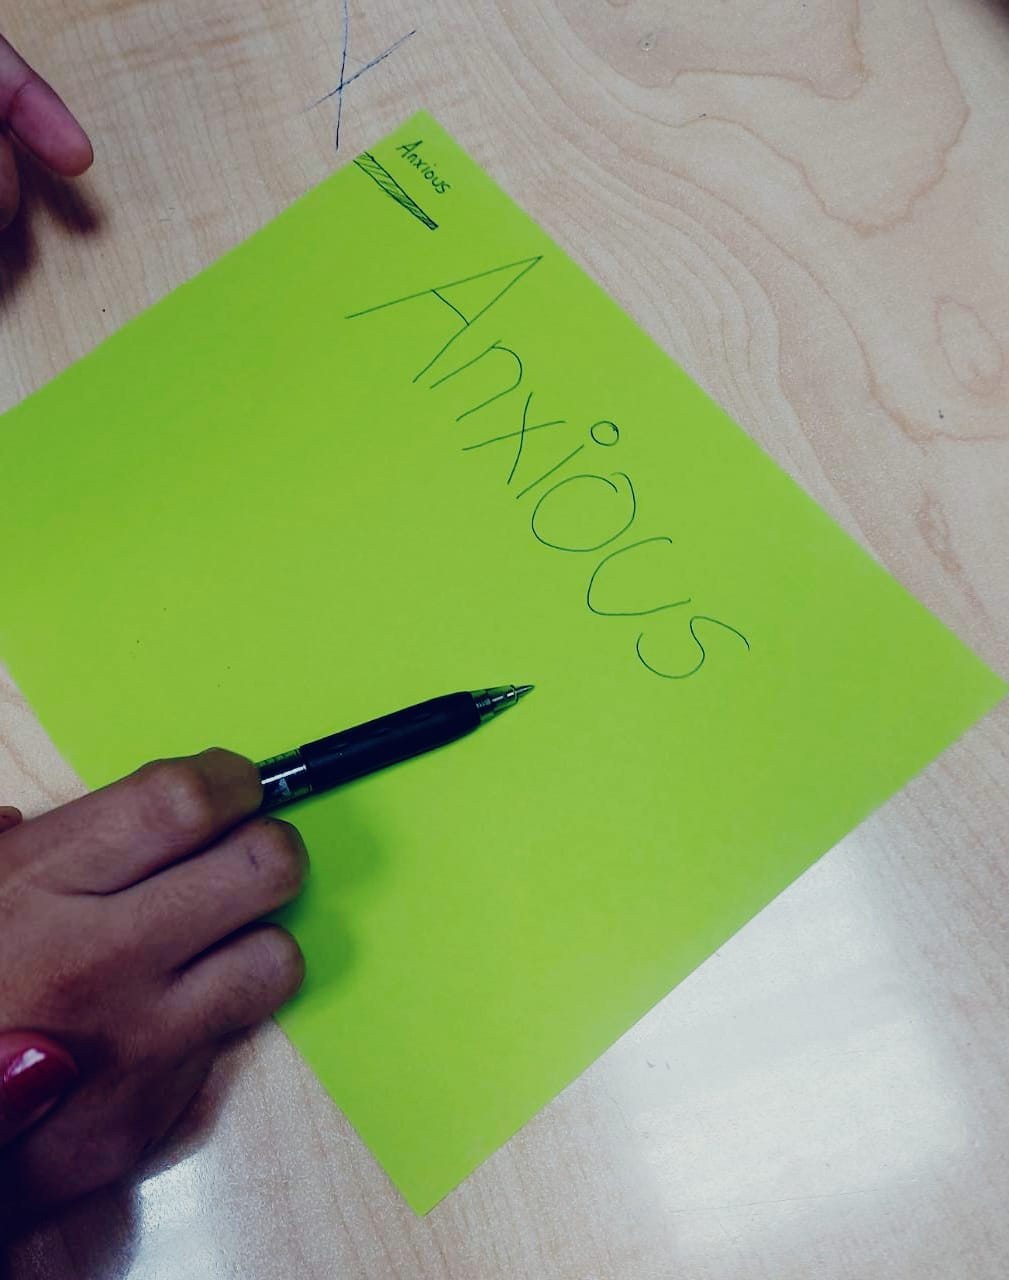 Anxious
Anxious